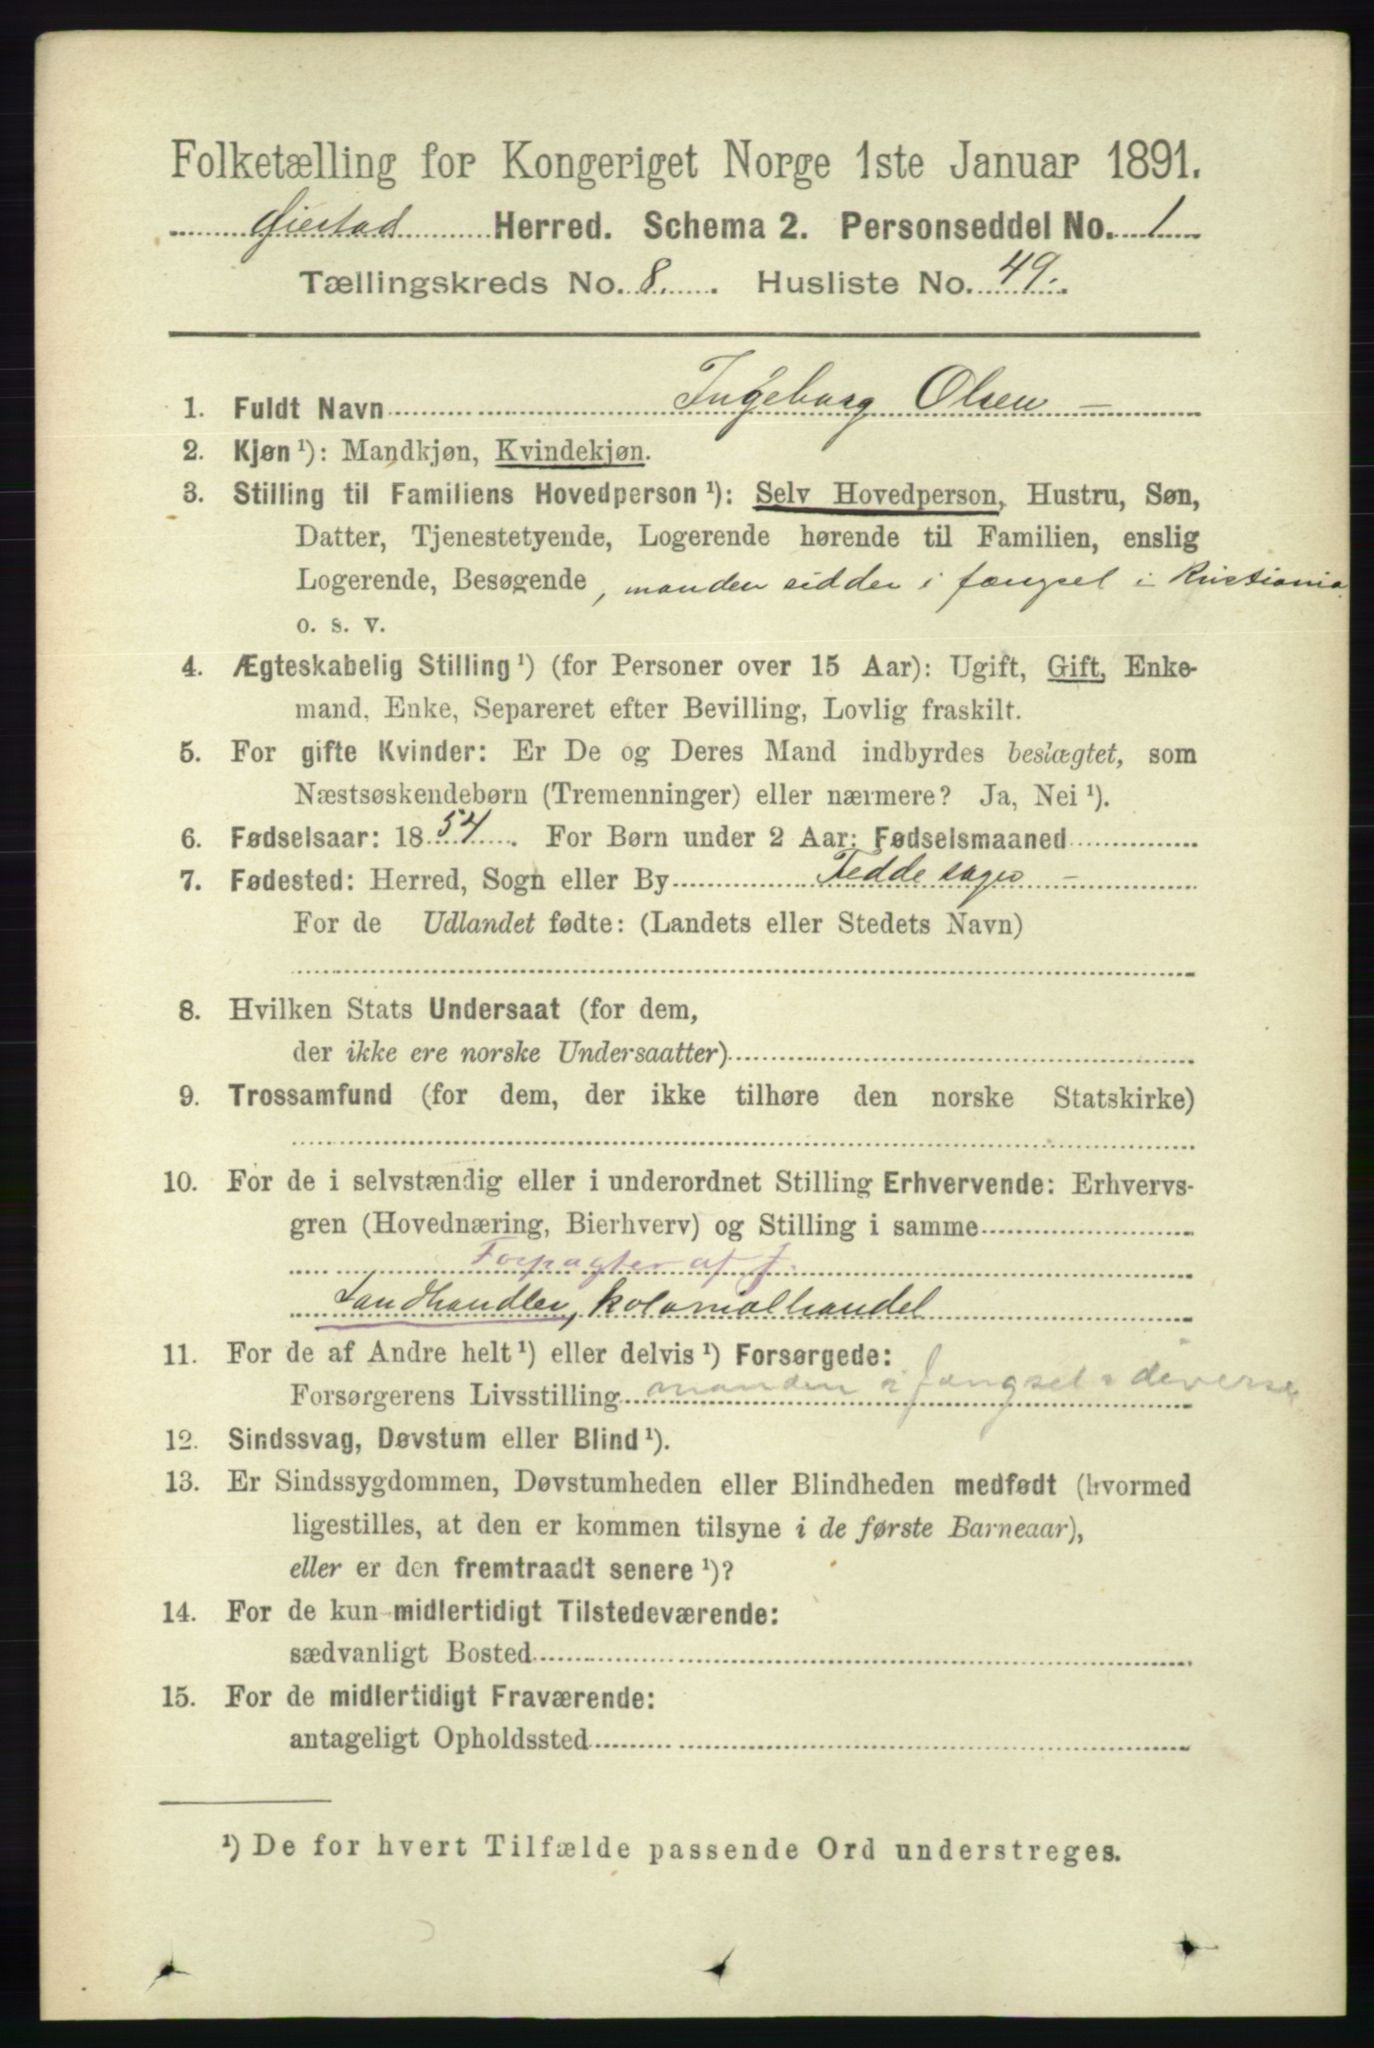 Folketælling for Kongeriget Norge 1ste Januar 1891.
Øiestad Herred. Schema 2. Personseddel No. 1
Tællingskreds No. 8. Husliste No. 49.
1. Fuldt Navn Ingeborg Olsen –
2. Kjøn ¹): Mandkjøn, Kvindekjøn.
3. Stilling til Familiens Hovedperson ¹): Selv Hovedperson, Hustru, Søn,
Datter, Tjenestetyende, Logerende hørende til Familien, enslig
Logerende, Besøgende, manden sidder i fængsel i Kristiania
o. s. v.
4. Ægteskabelig Stilling ¹) (for Personer over 15 Aar): Ugift, Gift, Enke-
mand, Enke, Separeret efter Bevilling, Lovlig fraskilt.
5. For gifte Kvinder: Er De og Deres Mand indbyrdes beslægtet, som
Næstsøskendebørn (Tremenninger) eller nærmere? Ja, Nei ¹).
6. Fødselsaar: 1854. For Børn under 2 Aar: Fødselsmaaned
7. Fødested: Herred, Sogn eller By Fedde sogn –
For de Udlandet fødte: (Landets eller Stedets Navn)
8. Hvilken Stats Undersaat (for dem,
der ikke ere norske Undersaatter)
9. Trossamfund (for dem, der ikke tilhøre den norske Statskirke)
10. For de i selvstændig eller i underordnet Stilling Erhvervende: Erhvervs-
gren (Hovednæring, Bierhverv) og Stilling i samme
Forpagter af J.
Landhandler, kolonialhandel
11. For de af Andre helt ¹) eller delvis ¹) Forsørgede:
Forsørgerens Livsstilling manden i fængsel diverse
12. Sindssvag, Døvstum eller Blind ¹).
13. Er Sindssygdommen, Døvstumheden eller Blindheden medfødt (hvormed
ligestilles, at den er kommen tilsyne i de første Barneaar),
eller er den fremtraadt senere ¹)?
14. For de kun midlertidigt Tilstedeværende:
sædvanligt Bosted
15. For de midlertidigt Fraværende:
antageligt Opholdssted
¹) De for hvert Tilfælde passende Ord understreges.